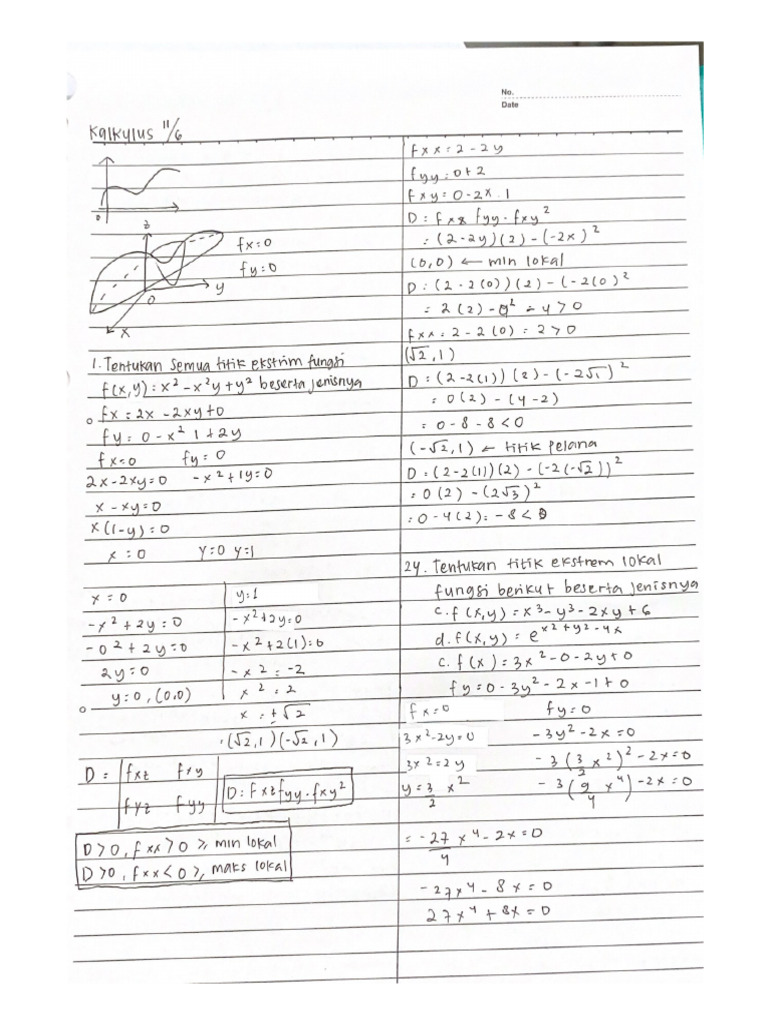 No.
Date
Kalkulus 11/6
0
z
y
x
0
fx=0
fy=0
1. Tentukan semua titik ekstrim fungsi
f(x,y) = x² - x²y + y² beserta jenisnya
fx = 2x - 2xy + 0
fy = 0 - x² 1 + 2y
fx=0 fy = 0
2x - 2xy = 0 -x² + 1y = 0
x - xy = 0
x(1-y) = 0
x = 0 y=0 y=1
x = 0
-x² + 2y = 0
-0² + 2y = 0
2y = 0
y = 0, (0,0)
y = 1
-x² + 2y = 0
-x² + 2(1) = 0
-x² = -2
x² = 2
x = ±√2
(√2,1) (-√2,1)
D = |fxz fxy|
|fyz fyy|
D = fxz fyy - fxy²
D > 0, fxx > 0 ⩾, min lokal
D > 0, fxx < 0 ⩾, maks lokal
fxx = 2 - 2y
fyy = 0 + 2
fxy = 0 - 2x . 1
D = fxx fyy - fxy²
= (2 - 2y)(2) - (-2x)²
(0,0) ← min lokal
D = (2 - 2(0))(2) - (-2(0)²
= 2(2) - 0² = 4 > 0
fxx = 2 - 2(0) = 2 > 0
(√2, 1)
D = (2 - 2(1))(2) - (-2√1)²
= 0(2) - (4-2)
= 0 - 8 - 8 < 0
(-√2, 1) ← titik pelana
D = (2 - 2(1))(2) - (-2(-√2))²
= 0(2) - (2√3)²
= 0 - 4(2) = -8 < 0
24. Tentukan titik ekstrem lokal
fungsi berikut beserta jenisnya
c. f(x,y) = x³ - y³ - 2xy + 6
d. f(x,y) = e^x²+y²-4x
c. f(x) = 3x² - 0 - 2y + 0
fy = 0 - 3y² - 2x - 1 + 0
fx=0 fy=0
3x² - 2y = 0 -3y² - 2x = 0
3x² = 2y -3(3/2 x²)² - 2x = 0
y = 3/2 x² -3(9/4 x⁴) - 2x = 0
= -27/4 x⁴ - 2x = 0
-27x⁴ - 8x = 0
27x⁴ + 8x = 0